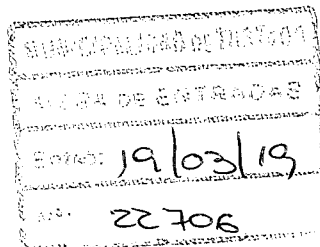 MUNICIPALIDAD DE
MESA DE ENTRADAS
Entró: 19/03/19
Nº. 22706